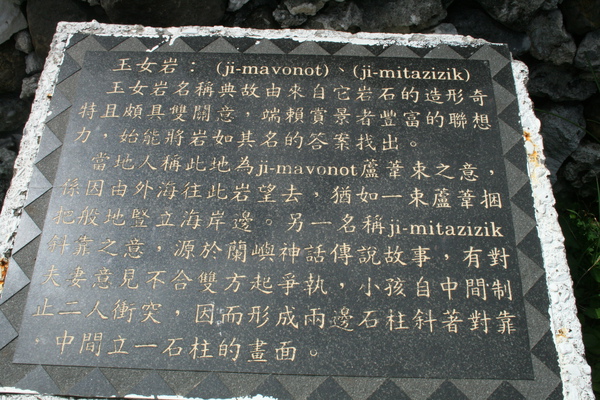 玉女岩：(ji-mavonot)、(ji-mitazizik)
玉女岩名稱典故由來自它岩石的造形奇
特且頗具雙關意，端賴賞景者豐富的聯想
力，始能將岩如其名的答案找出。
當地人稱此地為ji-mavonot蘆葦束之意，
係因由外海往此岩望去，猶如一束蘆葦捆
把般地豎立海岸邊。另一名稱ji-mitazizik
斜靠之意，源於蘭嶼神話傳說故事，有對
夫妻意見不合雙方起爭執，小孩自中間制
止二人衝突，因而形成兩邊石柱斜著對靠
，中間立一石柱的畫面。